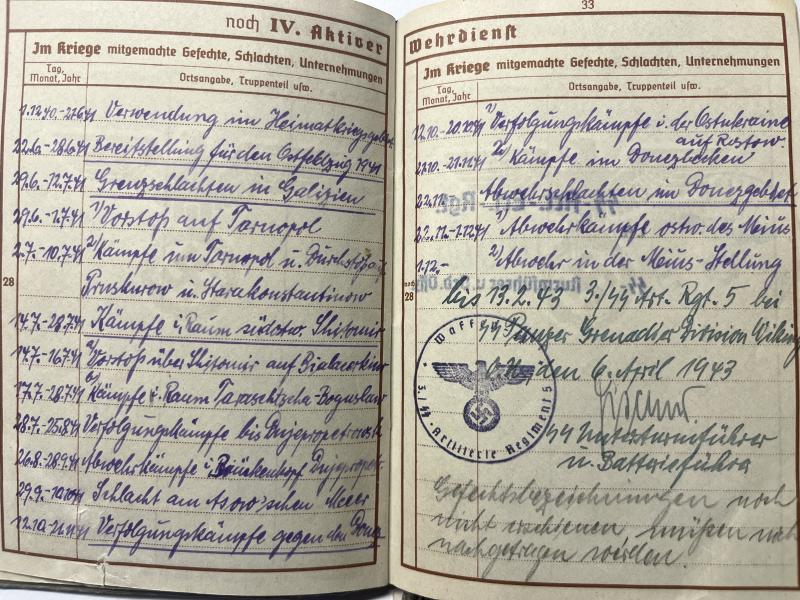 noch IV. Aktiver
Im Kriege mitgemachte Gefechte, Schlachten, Unternehmungen
Tag, Monat, Jahr
Ortsangabe, Truppenteil usw.
1.12.40.-21.6.41 Verwendung im Heimatkriegsgebiet
22.6.-28.6.41 Bereitstellung für den Ostfeldzug 1941
29.6.-12.7.41 Grenzschlachten in Galizien
29.6.-1.7.41 1) Vorstoß auf Tarnopol
2.7.-10.7.41 2) Kämpfe um Tarnopol u. Durchstoß auf
Proskurow u. Starakonstantinow
28
14.7.-28.7.41 Kämpfe i. Raum südostw. Shitomir
14.7.-16.7.41 Vorstoß über Shitomir auf
17.7.-28.7.41 Kämpfe i. Raum Taraschtscha-Boguslaw
28.7.-25.8.41 Verfolgungskämpfe bis Dnjepropetrowsk
26.8.-28.9.41 Abwehrkämpfe i. Brückenkopf Dnjepropetr.
29.9.- Schlacht am Asow'schen Meer
12.10.-21.11.41 Verfolgungskämpfe gegen den Donez
33
Wehrdienst
Im Kriege mitgemachte Gefechte, Schlachten, Unternehmungen
Tag, Monat, Jahr
Ortsangabe, Truppenteil usw.
12.10.-20.10.41 1) Verfolgungskämpfe i. der Ostukraine
auf Rostow
21.10.-21.11.41 2) Kämpfe im Donezbecken
22.11. Abwehrschlachten im Donezgebiet
22.11.-1.12.41 1) Abwehrkämpfe ostw. des Mius
1.12.- 2) Abwehr in der Mius-Stellung
noch 28
bis 13.2.43 3./SS Art. Rgt. 5 bei
SS Panzer Grenadier Division Wiking
den 6. April 1943
Waffen
3./SS-Artillerie Regiment 5
SS Untersturmführer
u. Batterieführer
Gefechtsbezeichnungen noch
nicht erschienen müßen noch
nachgetragen werden.